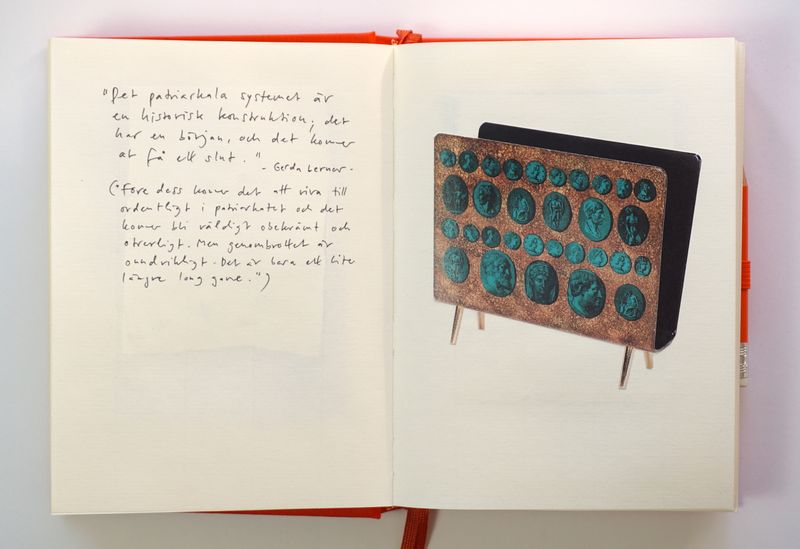 "Det patriarkala systemet är
en historisk konstruktion; det
har en början, och det kommer
att få ett slut."
- Gerda Lerner -
("Före dess kommer det att riva till
ordentligt i patriarkatet och det
kommer bli väldigt obekvämt och
otrevligt. Men genombrottet är
oundvikligt. Det är bara ett lite
längre long game.")